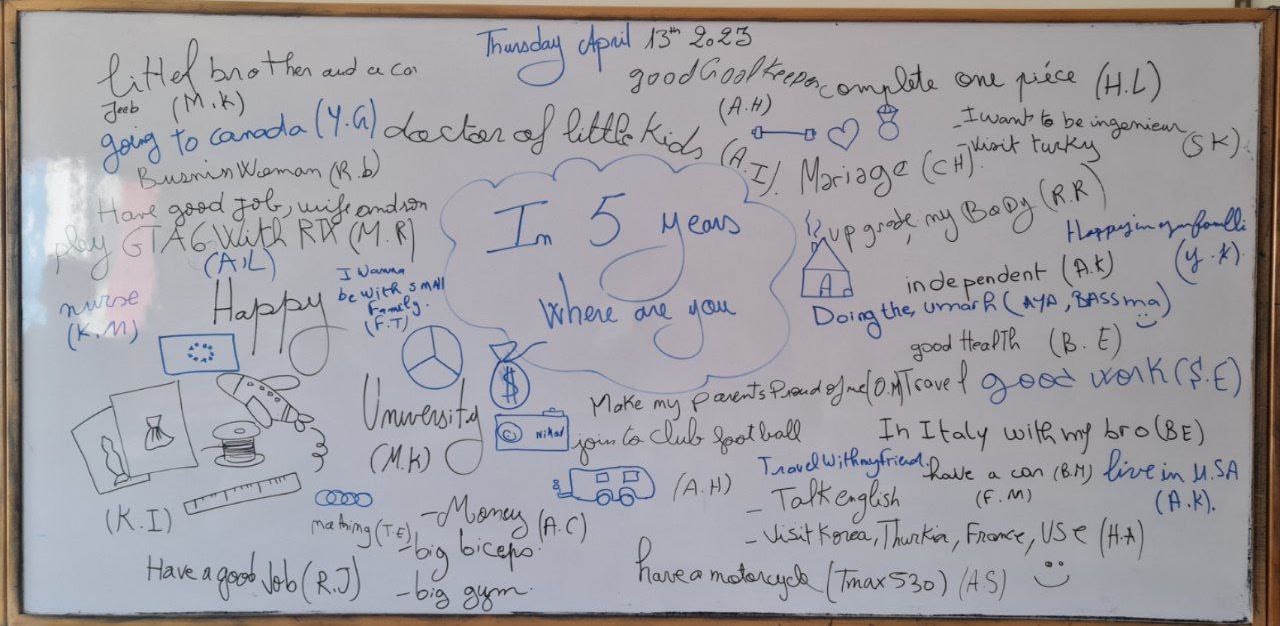 Thursday April 13th 2023
littel brother and a car
Jeeb (M.K)
good Goolkeeper
(A.H)
complete one piéce (H.L)
going to canada (Y.G)
doctor of little kids (A.I).
-I want to be ingenieur
-visit turky (SK)
BusninWoeman (R.b)
Mariage (CH)
Have good Job, wife and son
play GTA6 With RTX (M.R)
(A,L)
In 5 years
where are you
up grade my BoDy (R.R)
Happy in my familli
(y.k).
nurse
(K.M)
Happy
I wanna
be with small
Family.
(F.T)
A
independent (A.K)
Doing the, umarh (AYA, BASSma)
good HealTh (B.E)
$
University
(M.K)
Make my parents Proud of me (O.M)
Travel
good work ($.E)
join to club football
(A.H)
In Italy with my bro (BE)
Travel With my friend.
(F.M)
have a car (B.M)
live in U.SA
(A.K).
(K.I)
mathing (T.E)
-Money (A.C)
-big biceps.
-big gym.
- Talk english
- Visit Korea, Thurkia, France, USE (H.A)
Have a good Job (R.J)
have a motorcycle (Tmax 530) (A.S)